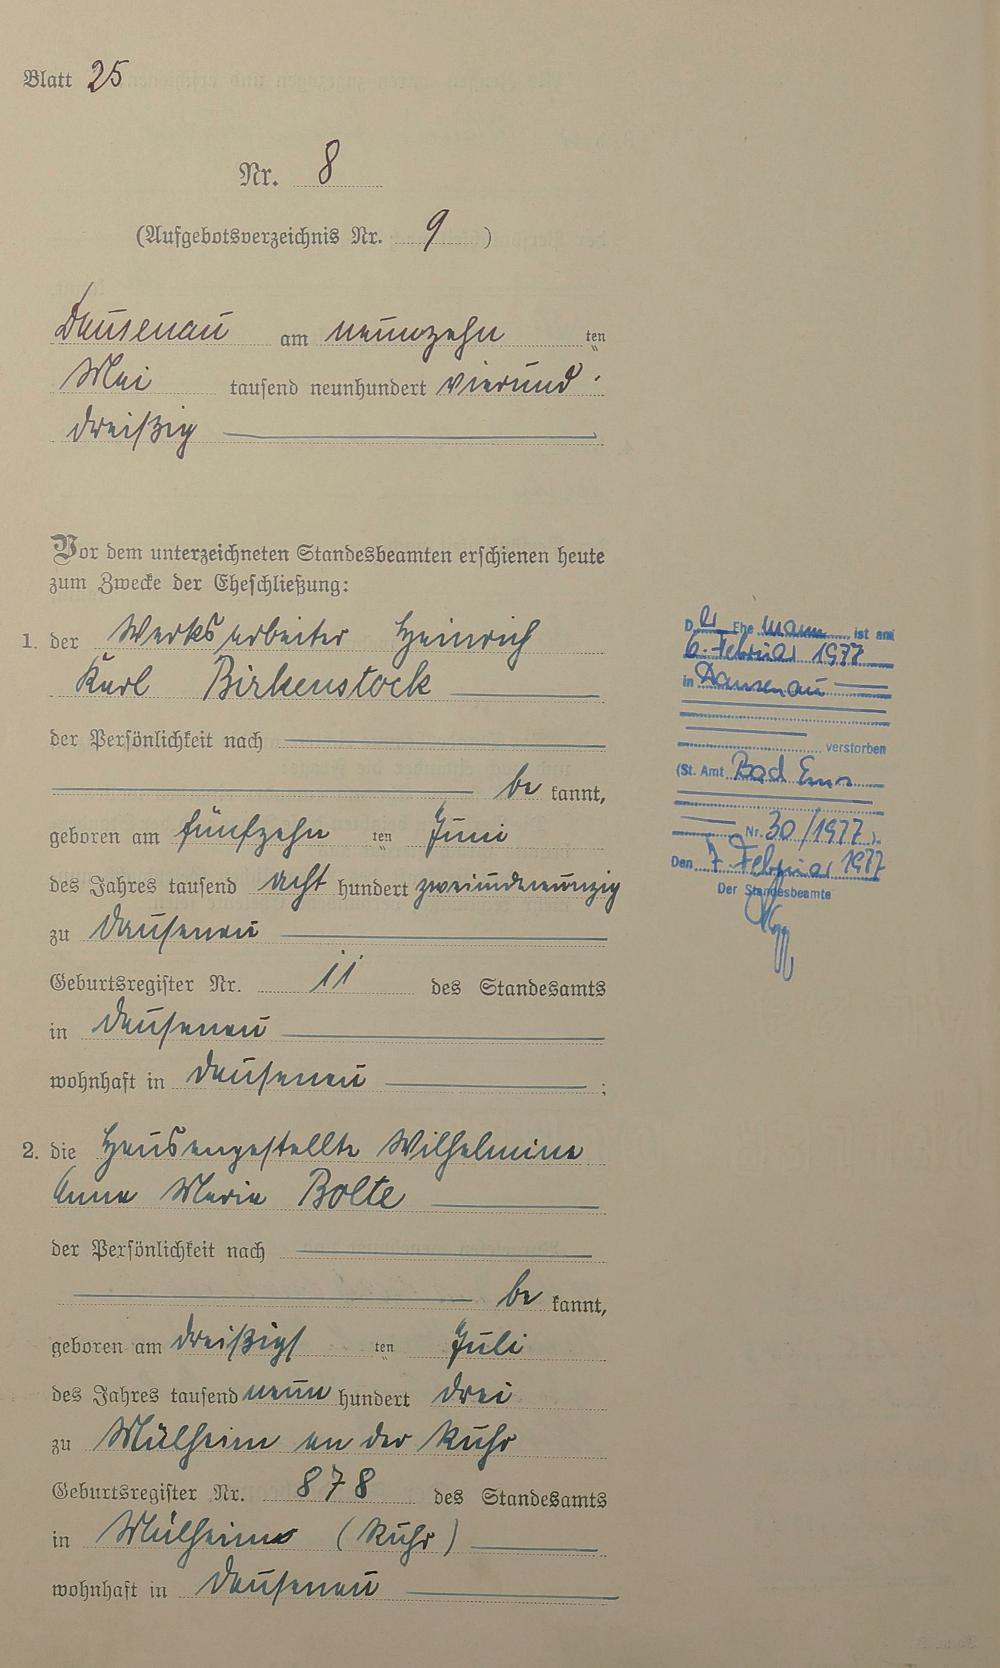 Blatt 25
Nr. 8
(Aufgebotsverzeichnis Nr. 9)
Dausenau am neunzehn ten
Mai tausend neunhundert vierund
dreißig
Vor dem unterzeichneten Standesbeamten erschienen heute
zum Zwecke der Eheschließung:
1. der Werksarbeiter Heinrich
Karl Birkenstock
der Persönlichkeit nach
be kannt,
geboren am fünfzehn ten Juni
des Jahres tausend acht hundert zweiundneunzig
zu Dausenau
Geburtsregister Nr. 11 des Standesamts
in Dausenau
wohnhaft in Dausenau ;
2. die Hausangestellte Wilhelmine
Anna Maria Bolte
der Persönlichkeit nach
be kannt,
geboren am dreißigs ten Juli
des Jahres tausend neun hundert drei
zu Mülheim an der Ruhr
Geburtsregister Nr. 878 des Standesamts
in Mülheim (Ruhr)
wohnhaft in Dausenau
D er Ehe mann ist am
6. Februar 1977
in Dausenau
verstorben
(St. Amt Bad Ems
Nr. 30/1977).
Den 7. Februar 1977
Der Standesbeamte